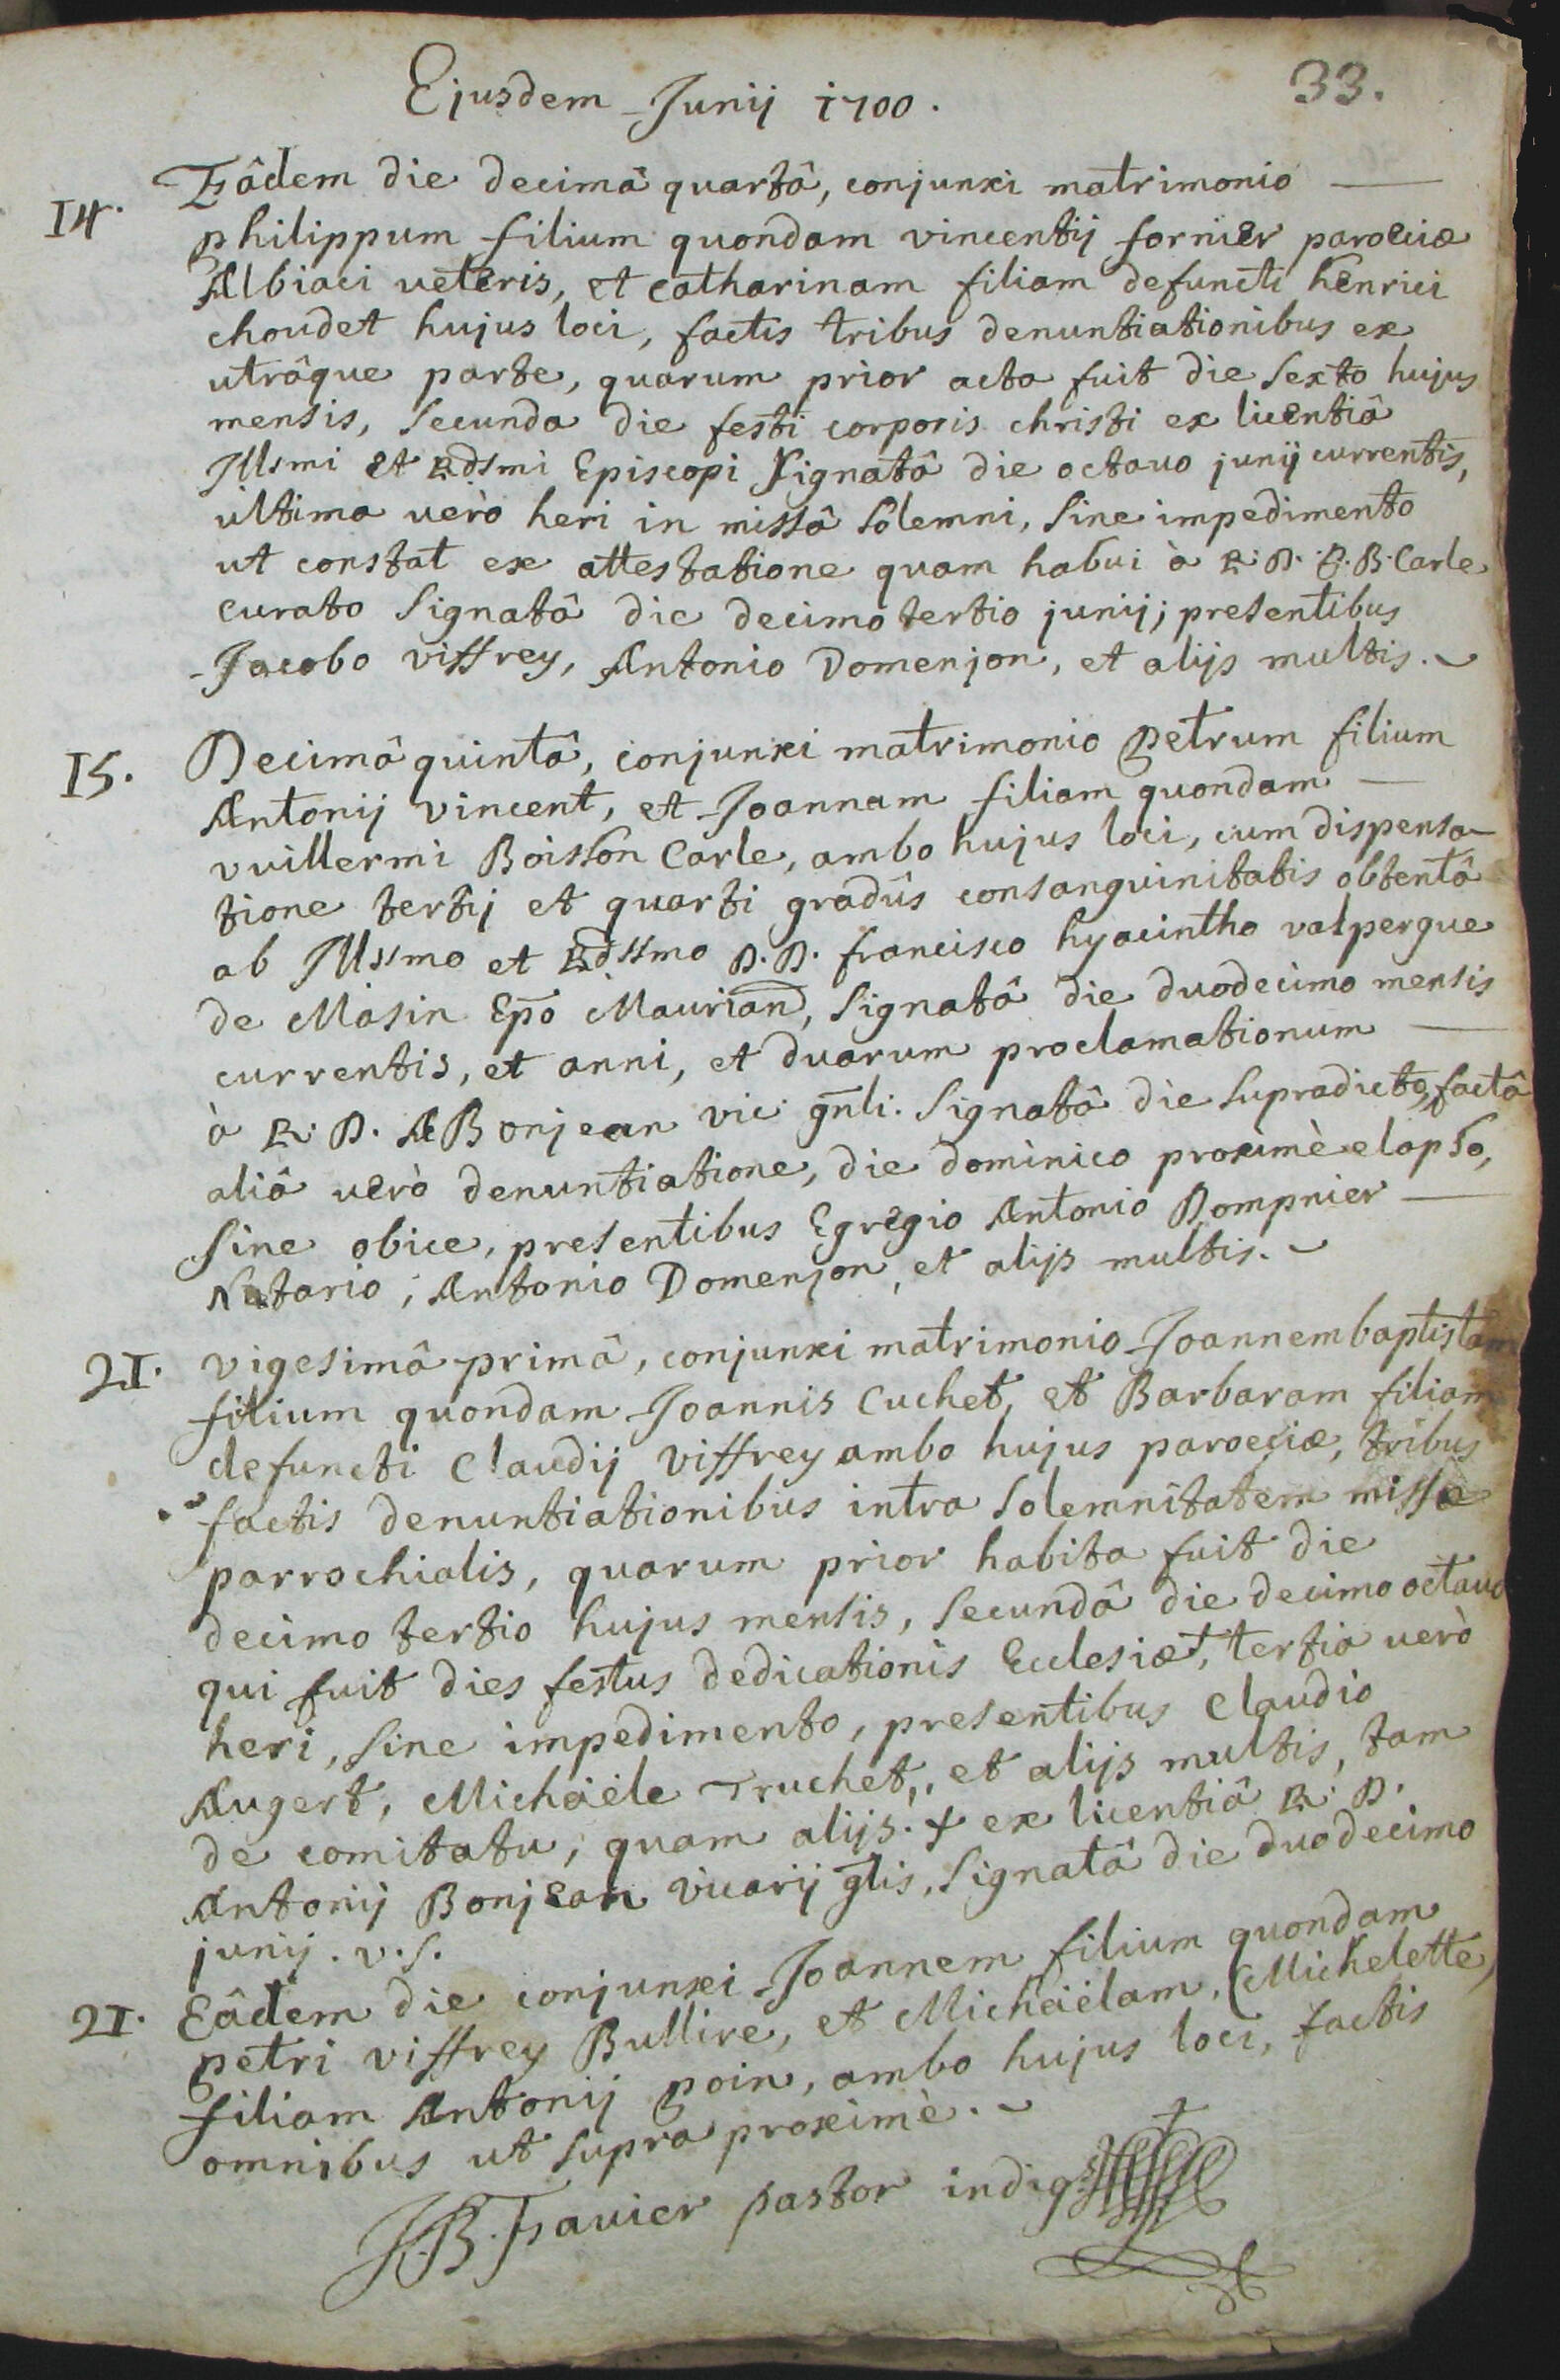 Ejusdem Junij 1700.
33.
14. Eâdem die decimâ quartâ, conjunxi matrimonio
philippum filium quondam vincentij fornier paroeciæ
Albiaci veteris, et catharinam filiam defuncti henrici
choudet hujus loci, factis tribus denuntiationibus ex
utrâque parte, quarum prior acta fuit die sexto hujus
mensis, secunda die festi corporis christi ex licentiâ
Illsmi et Rdsmi Episcopi signatâ die octavo junij currentis,
ultima verò heri in missâ solemni, sine impedimento
ut constat ex attestatione quam habui à R. D. P. B. Carle
curato signatâ die decimo tertio junij; presentibus
Jacobo viffrey, Antonio Domenjon, et alijs multis.
15. Decimâ quintâ, conjunxi matrimonio petrum filium
Antonij vincent, et Joannam filiam quondam
vuillermi Boisson Carle, ambo hujus loci, cum dispensa-
tione tertij et quarti gradûs consanguinitatis obtentâ
ab Illssmo et Rdssmo D. D. francisco hyacintho valpergue
de Masin Epō Maurian, signatâ die duodecimo mensis
currentis, et anni, et duarum proclamationum
à R. D. A Bonjean vic. gn̄li. signatâ die supradicto, factâ
aliâ verò denuntiatione, die dominico proximè elapso,
sine obice, presentibus Egregio Antonio Dompnier
Notario, Antonio Domenjon, et alijs multis.
21. vigesimâ primâ, conjunxi matrimonio Joannem baptistam
filium quondam Joannis Cuchet, et Barbaram filiam
defuncti Claudij viffrey ambo hujus paroeciæ, tribus
factis denuntiationibus intra solemnitatem missæ
parrochialis, quarum prior habita fuit die
decimo tertio hujus mensis, secundâ die decimo octavo
qui fuit dies festus dedicationis Ecclesiæ+, tertia verò
heri, sine impedimento, presentibus Claudio
Augert, Michaële Truchet, et alijs multis, tam
de comitatu, quam alijs. + ex licentiâ R. D.
Antonij Bonjean vicarij glīs, signatâ die duodecimo
junij. v. s.
21. Eâdem die conjunxi Joannem filium quondam
petri viffrey Bullire, et Michaëlam, (Michelette)
filiam Antonij poin, ambo hujus loci, factis
omnibus ut supra proximè.
J B. Favier pastor indigs